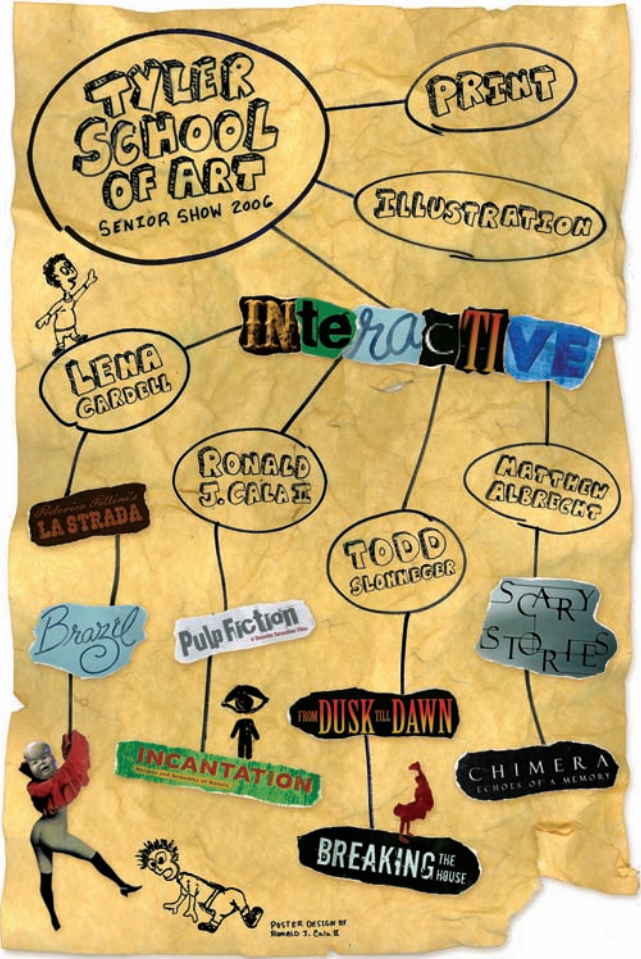 TYLER
SCHOOL
OF ART
SENIOR SHOW 2006
PRINT
ILLUSTRATION
INteraCTIVE
LENA
CARDELL
RONALD
J. CALA II
MATTHEW
ALBRECHT
TODD
SLONNEGER
Federico Fellini's
LA STRADA
Brazil
Pulp Fiction
a Quentin Tarantino Film
SCARY
STORIES
FROM DUSK TILL DAWN
INCANTATION
CHIMERA
ECHOES OF A MEMORY
BREAKING THE
HOUSE
POSTER DESIGN BY
RONALD J. Cala II